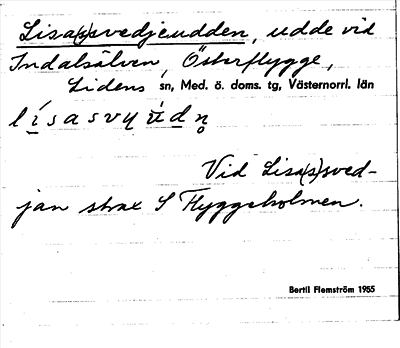 Lisa(s)svedjeudden, udde vid
Indalsälven, Österflygge,
Lidens sn, Med. ö. doms. tg, Västernorrl. län
Vid Lisa(s)sved-
jan strax S Flyggeholmen.
Bertil Flemström 1955